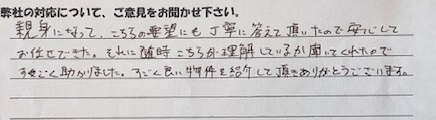 弊社の対応について、ご意見をお聞かせ下さい。
親身になって、こちらの要望にも丁寧に答えて頂いたので安心して
お任せできた。それに随時こちらが理解しているか聞いてくれたので
すごく助かりました。すごく良い物件を紹介して頂きありがとうございます。